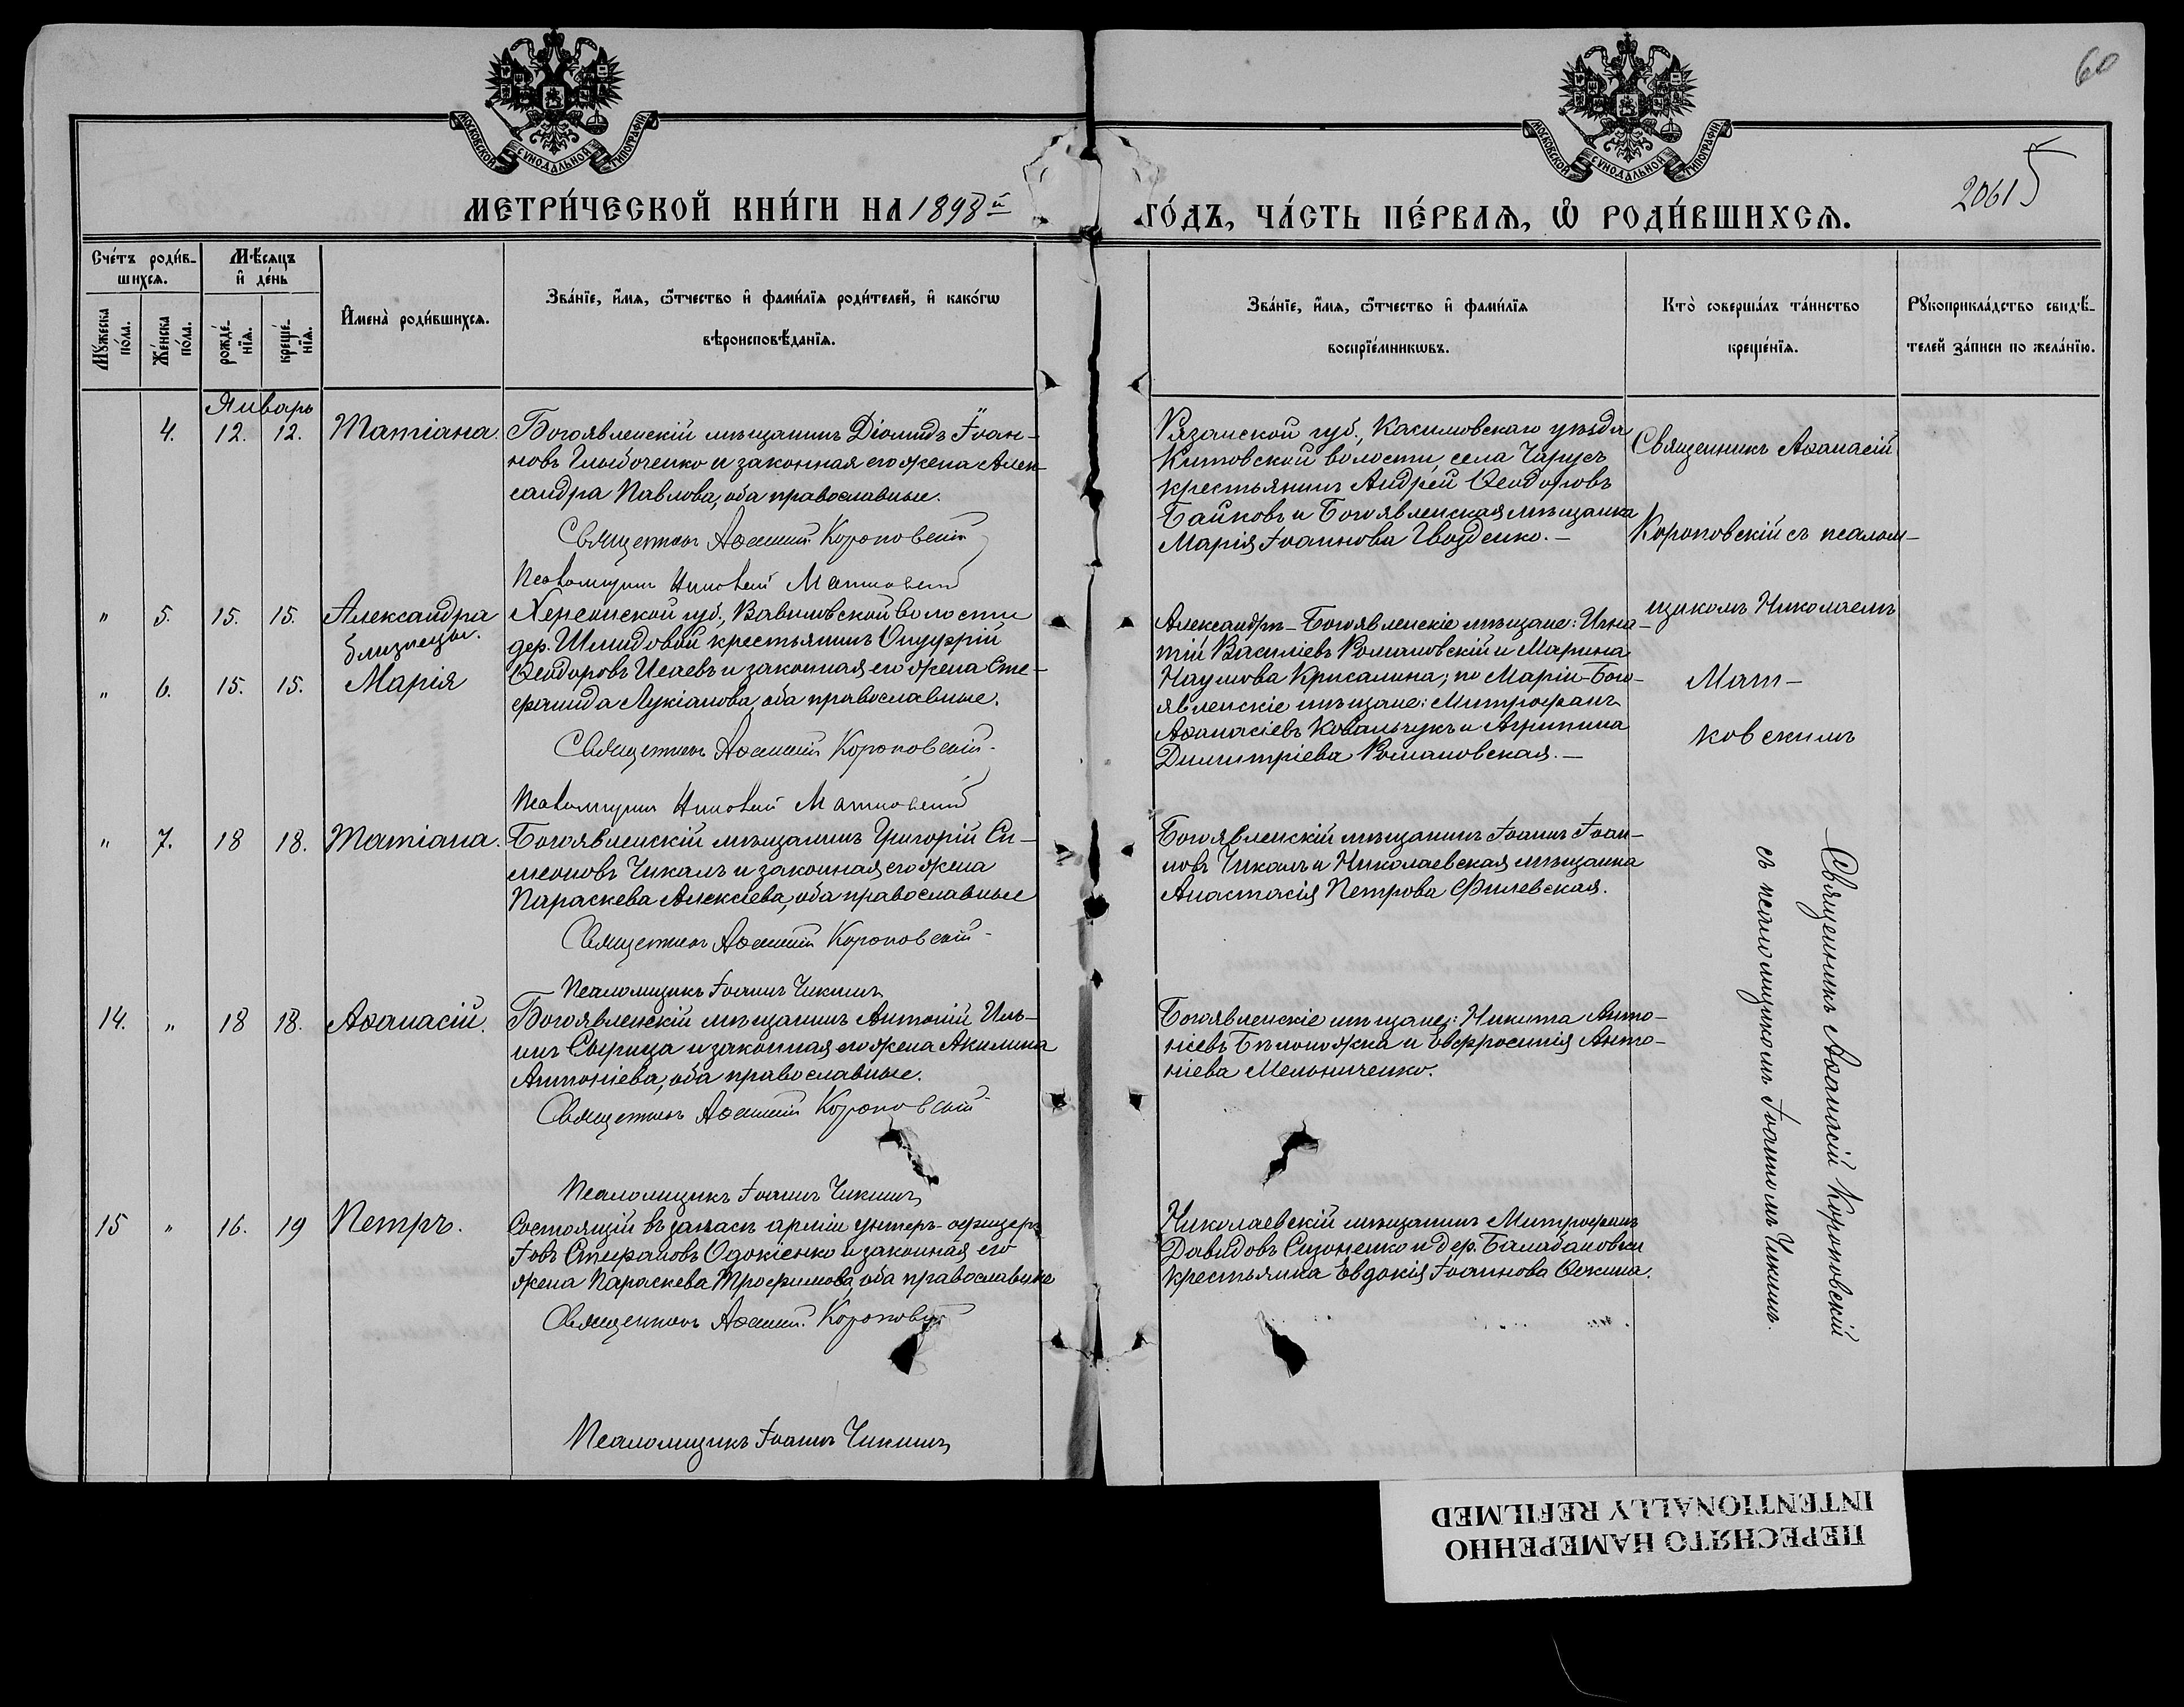 60
МОСКОВСКОЙ СѴНОДАЛЬНОЙ ТИПОГРАФІИ
МОСКОВСКОЙ СѴНОДАЛЬНОЙ ТИПОГРАФІИ
2061 5
МЕТРИ́ЧЕСКОЙ КНИ́ГИ НА 1898й ГО́ДЪ, ЧА́СТЬ ПЕ́РВАЯ, Ѡ РОДИ́ВШИХСЯ.
Сче́тъ роди́в-
шихся.
Мѣ́сяцъ
и҆ де́нь
Мꙋ́жеска
по́ла.
Же́нска
по́ла.
рожде́-
нїя.
креще́-
нїя.
И҆мена̀ роди́вшихся.
Зва́нїе, и҆́мя, ѻ҆́тчество и҆ фами́лїя роди́телей, и҆ како́гѡ
вѣроисповѣ́данїя.
Зва́нїе, и҆́мя, ѻ҆́тчество и҆ фами́лїя
воспрїе́мникѡвъ.
Кто̀ соверша́лъ та́инство
креще́нїя.
Рꙋкоприкла́дство свидѣ́-
телей за́писи по жела́нїю.
Январь
4. 12. 12. Татіана.
Богоявленскій мѣщанинъ Діомидъ Іоан-
новъ Глыбоченко и законная его жена Алек-
сандра Павлова, оба православные.
Священникъ Аѳанасій Короповскій
Псаломщикъ Николай Матковскій
Рязанской губ., Касимовскаго уѣзда
Китовской волости, села Чарусъ
крестьянинъ Андрей Ѳеодоровъ
Байковъ и Богоявленская мѣщанка
Марія Іоаннова Гвозденко. —
Священникъ Аѳанасій
Короповскій съ псалом-
щикомъ Николаемъ
Мат-
ковскимъ
" 5. 15. 15. Александра
близнецы.
" 6. 15. 15. Марія
Херсонской губ., Вавиловской волости
дер. Шмидовой крестьянинъ Онуфрій
Ѳеодоровъ Исаевъ и законная его жена Сте-
фанида Лукіанова, оба православные.
Священникъ Аѳанасій Короповскій
Псаломщикъ Николай Матковскій
Александры – Богоявленскіе мѣщане: Игна-
тій Василіевъ Романовскій и Марина
Наумова Крисалина; по Маріи – Бого-
явленскіе мѣщане: Митрофанъ
Аѳанасіевъ Ковальчукъ и Агрипина
Димитріева Романовская. —
" 7. 18 18. Татіана.
Богоявленскій мѣщанинъ Григорій Си-
меоновъ Чикалъ и законная его жена
Параскева Алексіева, оба православные
Священникъ Аѳанасій Короповскій
Псаломщикъ Іоаннъ Чикинъ
Богоявленскій мѣщанинъ Іоаннъ Іоан-
новъ Чикалъ и Николаевская мѣщанка
Анастасія Петрова Филевская.
Священникъ Аѳанасій Короповскій
съ псаломщикомъ Іоанномъ Чикинымъ.
14. " 18 18. Аѳанасій.
Богоявленскій мѣщанинъ Антоній Иль-
инъ Сырица и законная его жена Акилина
Антоніева, оба православные.
Священникъ Аѳанасій Короповскій
Псаломщикъ Іоаннъ Чикинъ
Богоявленскіе мѣщане: Никита Анто-
ніевъ Бѣлоножка и Евфросинія Анто-
ніева Мельниченко.
15 " 16. 19 Петръ.
Состоящій въ запасѣ арміи унтеръ-офицеръ
Іовъ Стефановъ Одокіенко и законная его
жена Параскева Трофимова, оба православные
Священникъ Аѳанасій Короповскій
Псаломщикъ Іоаннъ Чикинъ
Николаевскій мѣщанинъ Митрофанъ
Давидовъ Сизоненко и дер. Балабановки
крестьянка Евдокія Іоаннова
ПЕРЕСНЯТО НАМЕРЕННО
INTENTIONALLY REFILMED